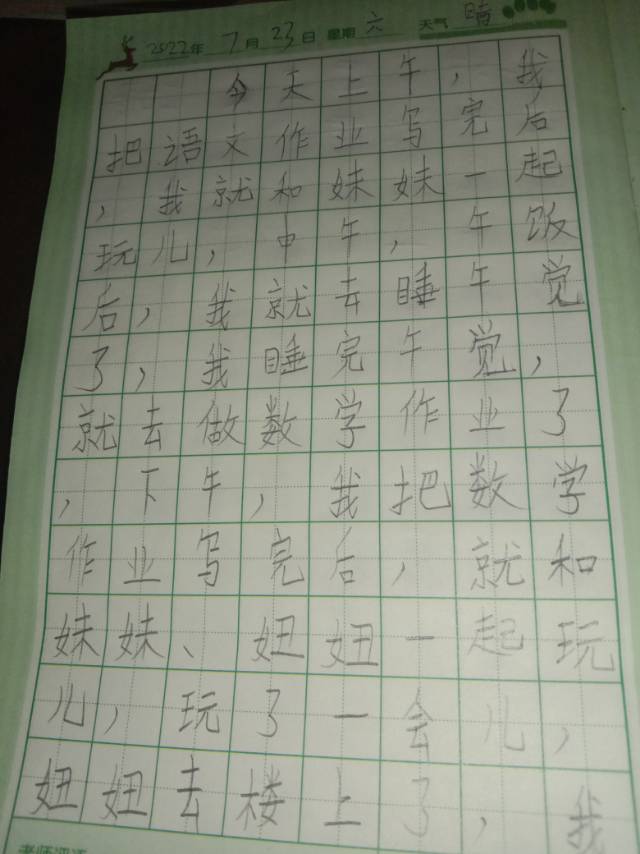 2022年 7月 23日 星期 六 天气 晴
今天上午，我
把语文作业写完后
，我就和妹妹一起
玩儿，中午，午饭
后，我就去睡午觉
了，我睡完午觉，
就去做数学作业了
，下午，我把数学
作业写完后，就和
妹妹、妞妞一起玩
儿，玩了一会儿，
妞妞去楼上了，我
老师评语